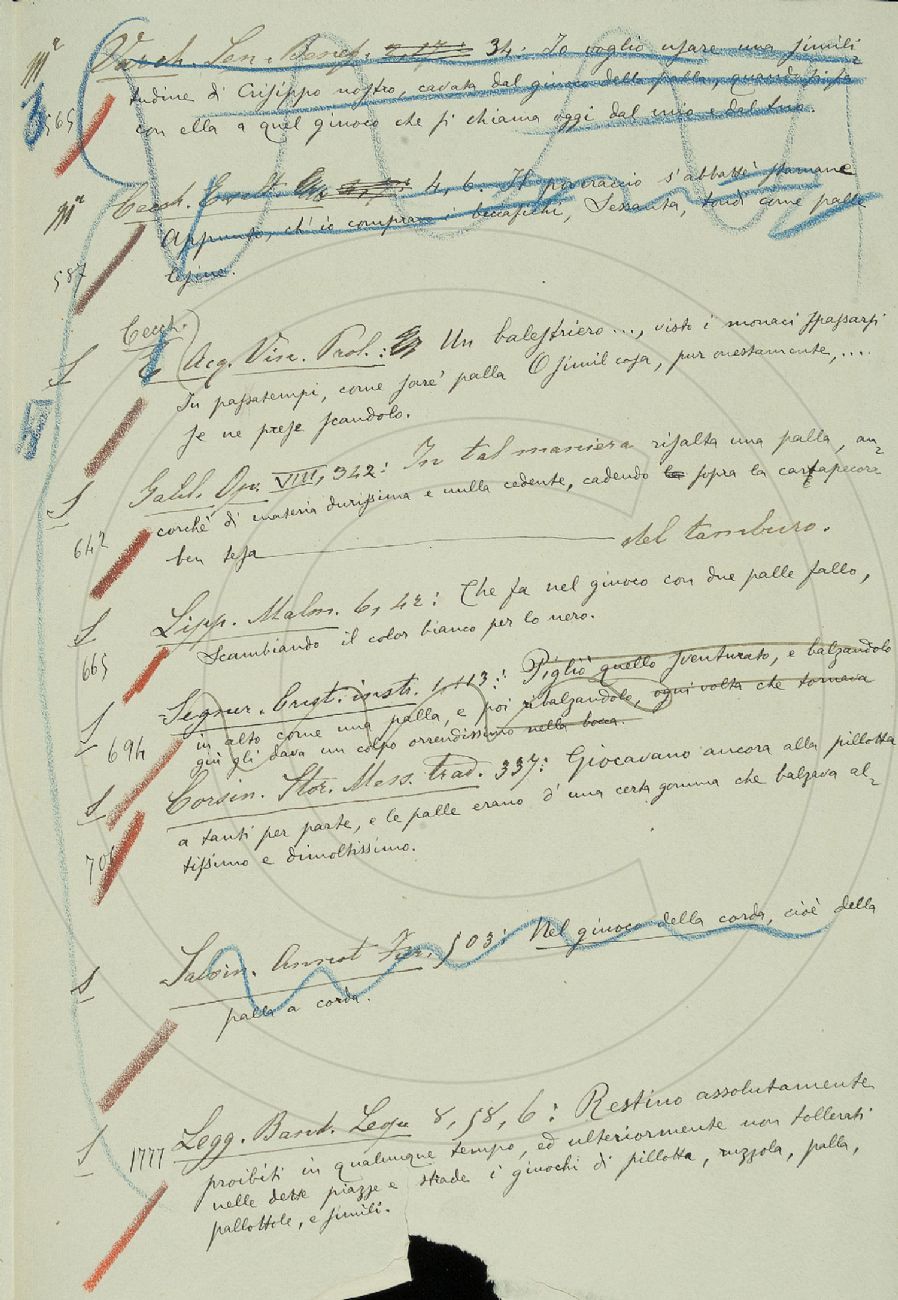 Mª Varch. Sen. Benef. 34: Io voglio usare una simili=
3 tudine di Crisippo nostro, cavata dal giuoco della palla, quando si fa
565 con ella a quel giuoco che si chiama oggi dal mio e dal tuo.
Mª Cecch. 4, 6: Il poveraccio s'abbassò stamane
Appunto, ch'io comprava i beccafichi, Sessanta, tondi come palle
587 lesine.
Cecch.
S Acq. Vin. Prol.: Un balestriero..., visto i monaci spassarsi
In passatempi, come sare' palla O simil cosa, pur onestamente,....
Se ne prese scandolo.
S Galil. Op. VIII, 342: In tal maniera risalta una palla, an=
corchè di materia durissima e nulla cedente, cadendo sopra la cartapecora
642 ben tesa del tamburo.
S Lipp. Malm. 6, 42: Che fa nel giuoco con due palle fallo,
665 Scambiando il color bianco per lo nero.
S Segner. Crist. instr. 1, 113: Pigliò quello sventurato, e balzandolo
694 in alto come una palla, e poi ribalzandolo, ogni volta che tornava
giù gli dava un colpo orrendissimo nella bocca.
S Corsin. Stor. Mess. trad. 337: Giocavano ancora alla pillotta
a tanti per parte, e le palle erano d'una certa gomma che balzava al=
tissimo e dimoltissimo.
S Salvin. Annot. Fier. 503: Nel giuoco della corda, cioè della
palla a corda.
S 1777 Legg. Band. Leop. 8, 58, 6: Restino assolutamente
proibiti in qualunque tempo, ed ulteriormente non tollerati
nelle dette piazze e strade i giuochi di pillotta, ruzzola, palla,
pallottole, e simili.